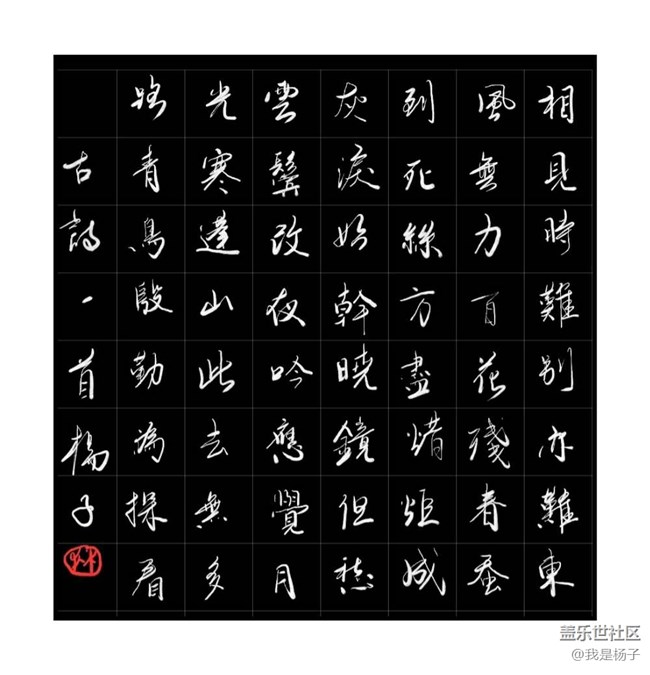 相見時難別亦難東
風無力百花殘春蚕
到死絲方盡焟炬成
灰淚始幹曉鏡但愁
雲鬢改夜吟應覺月
光寒蓬山此去無多
路青鳥殷勤為探看
古詩一首楊子
盖乐世社区
@我是杨子